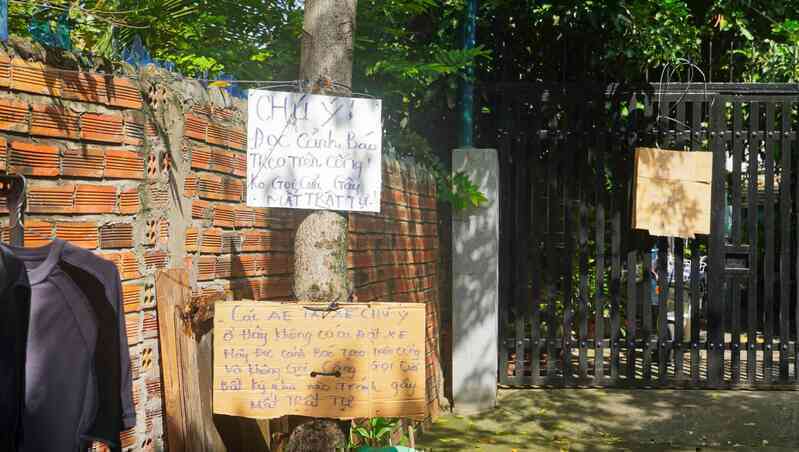 CHÚ Ý!
ĐỌC Cảnh Báo
Treo Trên Cổng!
Ko Gọi Cửa Gây
MẤT TRẬT TỰ!
Các AE TÀI XẾ CHÚ Ý
Ở Đây Không có ai Đặt XE
Hãy Đọc cảnh Báo Treo Trên Cổng
Và Không Gọi Cổng Gọi Cửa
Bất Kỳ nhà nào Tránh gây
Mất TRẬT TỰ